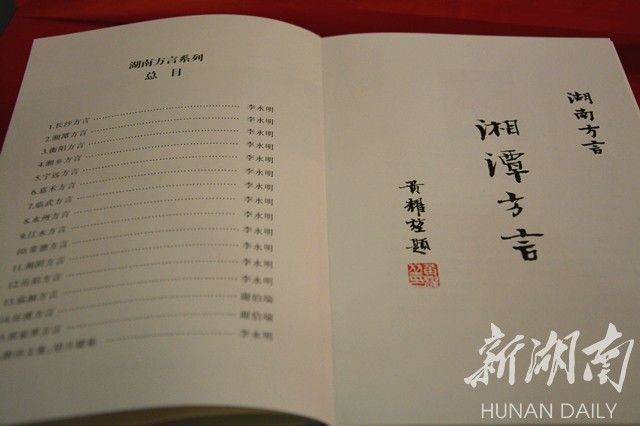 湖南方言系列
总 目
1.长沙方言 李永明
2.湘潭方言 李永明
3.衡阳方言 李永明
4.湘乡方言 李永明
5.宁远方言 李永明
6.嘉禾方言 李永明
7.临武方言 李永明
8.永州方言 李永明
9.江永方言 李永明
10.常德方言 李永明
11.湘阴方言 李永明
12.岳阳方言 李永明
13.临湘方言 谢伯端
14. 方言 谢伯端
方言 李永明
湖南方言
湘潭方言
黄耀堃题
新湖南
HUNAN DAILY